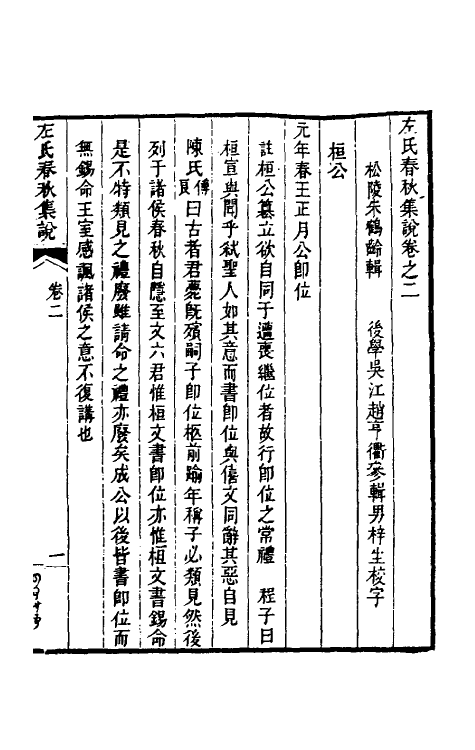 左氏春秋集說卷之二
松陵朱鶴齡輯　後學吳江趙亨衢參輯男梓生校字
桓公
元年春王正月公卽位
註桓公篡立欲自同于遭喪繼位者故行卽位之常禮　程子曰
桓宣與聞乎弑聖人如其意而書卽位與僖文同辭其惡自見
陳氏傅良曰古者君薨旣殯嗣子卽位柩前踰年稱子必類見然後
列于諸侯春秋自隱至文六君惟桓文書卽位亦惟桓文書錫命
是不特類見之禮廢雖請命之禮亦廢矣成公以後皆書卽位而
無錫命王室感諷諸侯之意不復講也
左氏春秋集說
卷二
一